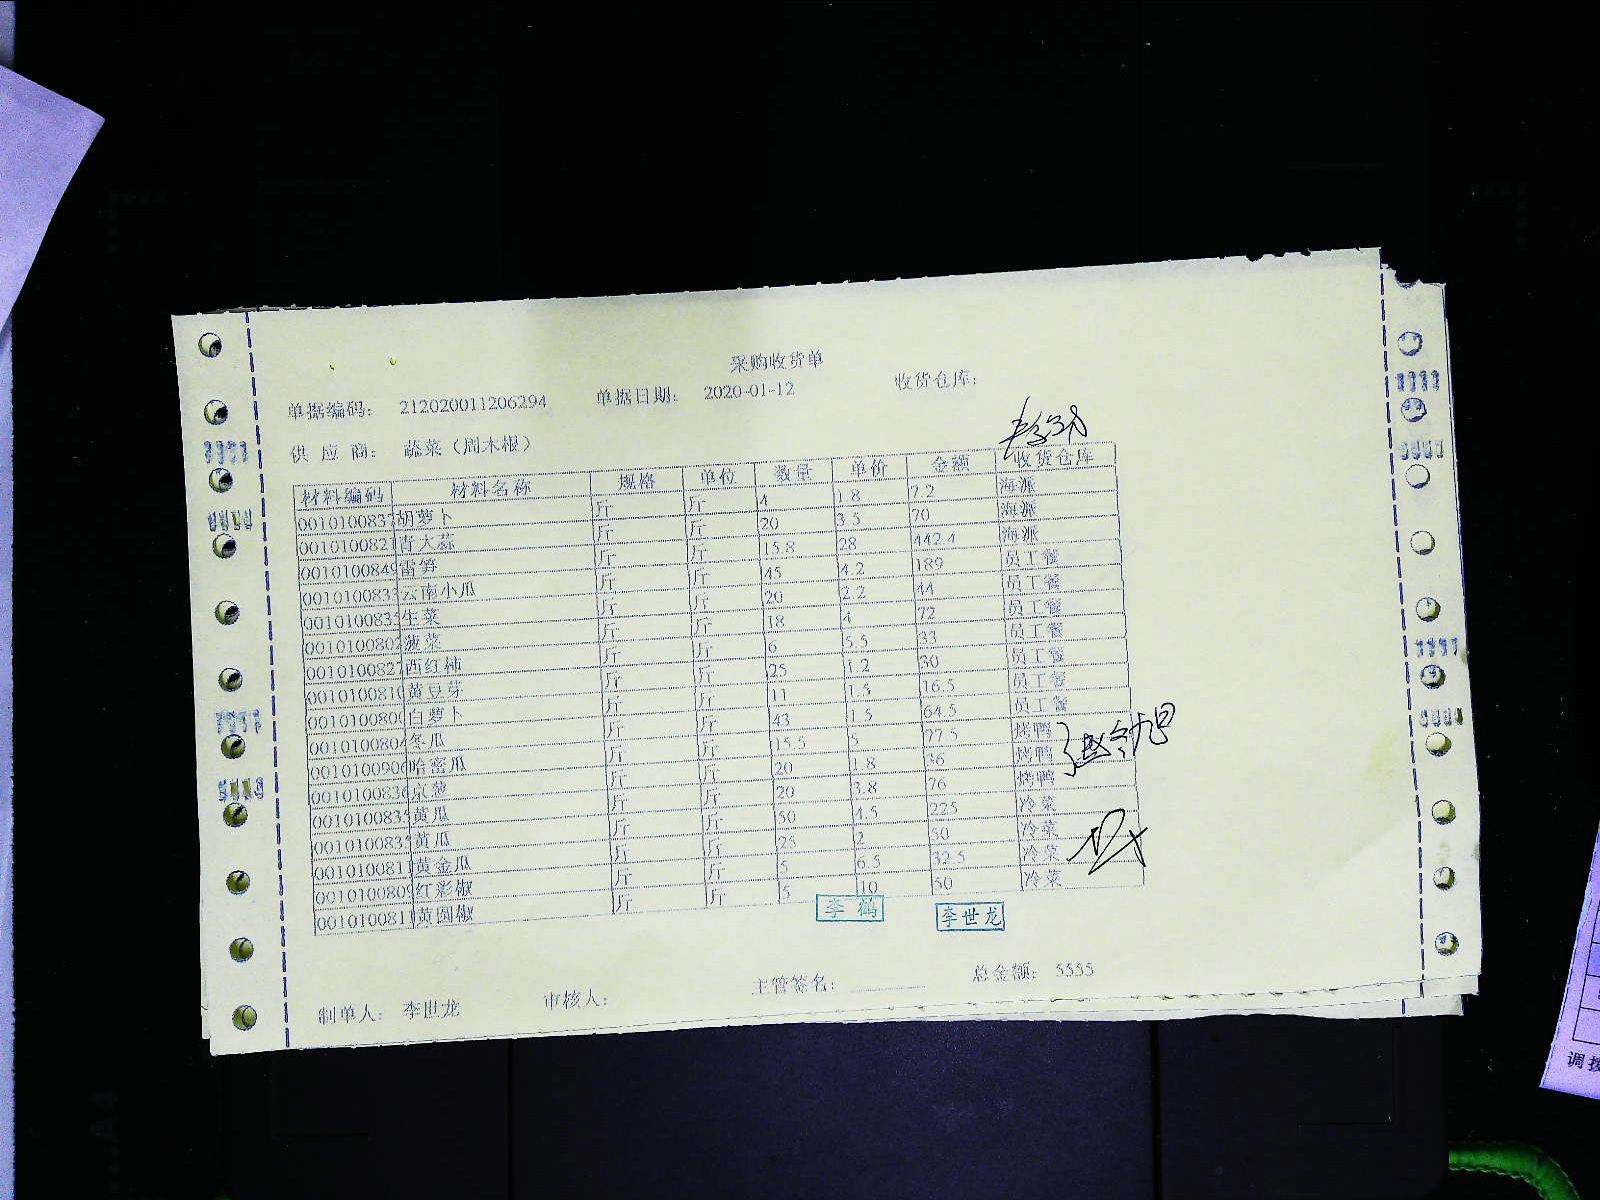 采购收货单
单据编码： 212020011206294 单据日期： 2020-01-12 收货仓库：
供 应 商： 蔬菜（周木根）
材料编码 材料名称 规格 单位 数量 单价 金额 收货仓库
0010100837 胡萝卜 斤 斤 4 1.8 7.2 海派
0010100821 青大蒜 斤 斤 20 3.5 70 海派
0010100849 雷笋 斤 斤 15.8 28 442.4 海派
0010100833 云南小瓜 斤 斤 45 4.2 189 员工餐
0010100835 生菜 斤 斤 20 2.2 44 员工餐
0010100802 菠菜 斤 斤 18 4 72 员工餐
0010100827 西红柿 斤 斤 6 5.5 33 员工餐
0010100810 黄豆芽 斤 斤 25 1.2 30 员工餐
0010100800 白萝卜 斤 斤 11 1.5 16.5 员工餐
0010100804 冬瓜 斤 斤 43 1.5 64.5 员工餐
0010100906 哈密瓜 斤 斤 15.5 5 77.5 烤鸭
0010100836 京葱 斤 斤 20 1.8 36 烤鸭
0010100835 黄瓜 斤 斤 20 3.8 76 烤鸭
0010100835 黄瓜 斤 斤 50 4.5 225 冷菜
0010100811 黄金瓜 斤 斤 25 2 50 冷菜
0010100809 红彩椒 斤 斤 5 6.5 32.5 冷菜
0010100811 黄圆椒 斤 斤 5 10 50 冷菜
李 鹤 李世龙
制单人： 李世龙 审核人： 主管签名： 总金额： 5555
调拨